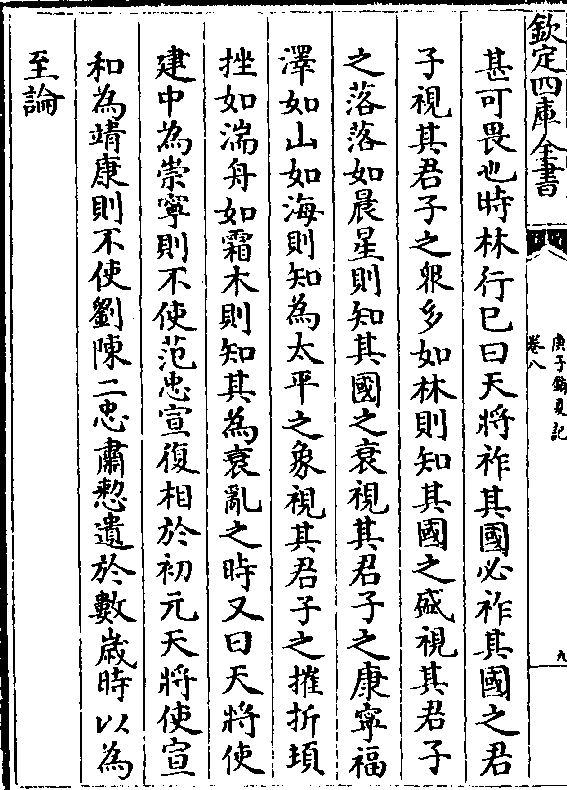 欽定四庫全書
庚子銷夏記
卷八
九
甚可畏也時林行已曰天將祚其國必祚其國之君
子視其君子之眾多如林則知其國之盛視其君子
之落落如晨星則知其國之衰視其君子之康寧福
澤如山如海則知為太平之象視其君子之摧折頊
挫如湍舟如霜木則知其為衰亂之時又曰天將使
建中為崇寧則不使范忠宣復相於初元天將使宣
和為靖康則不使劉陳二忠肅憖遺於數歲時以為
至論